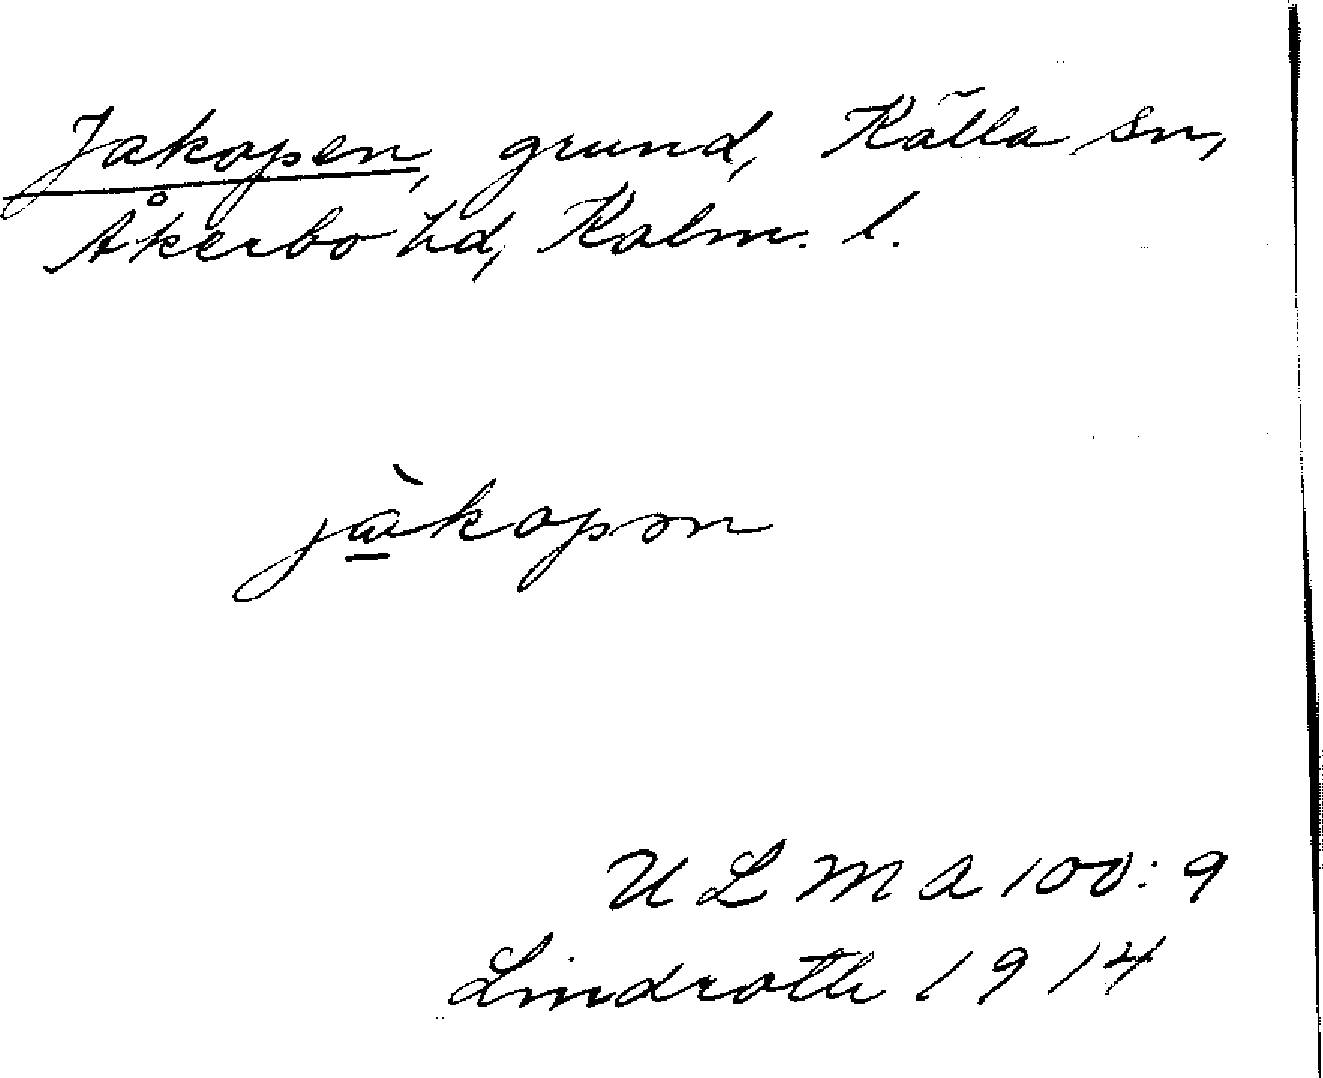 Jakopen, grund, Källa sn,
Åkerbo hd, Kalm. l.
jàkopən
ULMA 100:9
Lindroth 1914